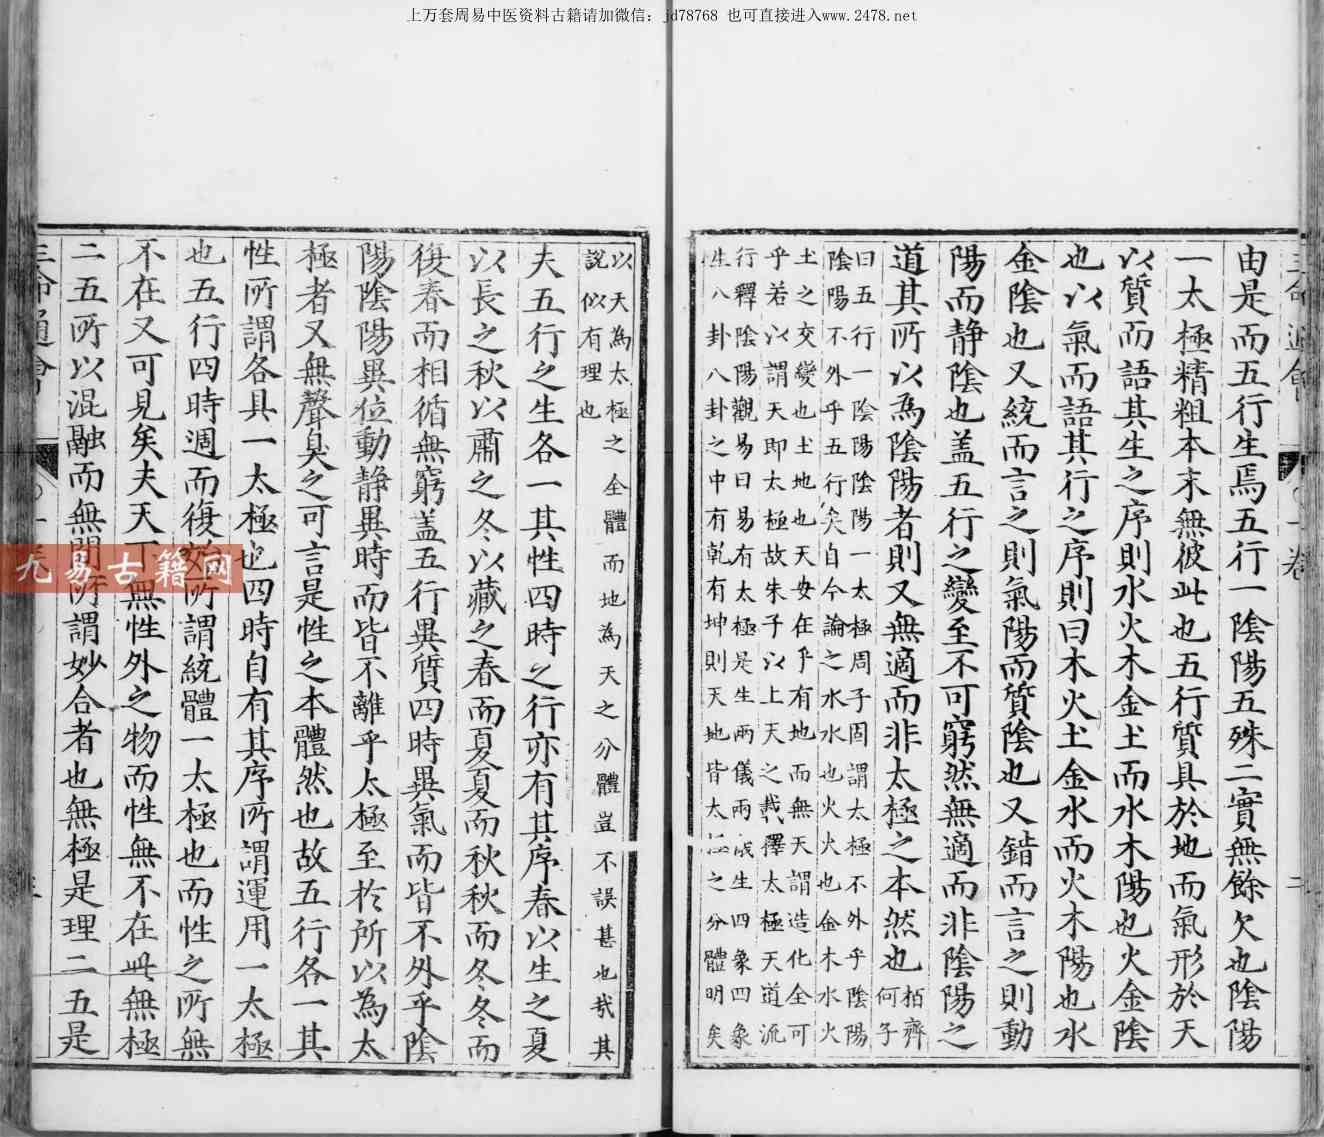 上万套周易中医资料古籍请加微信：jd78768 也可直接进入www.2478.net
三命通會 一卷 二
由是而五行生焉五行一陰陽五殊二實無餘欠也陰陽
一太極精粗本末無彼此也五行質具於地而氣形於天
以質而語其生之序則水火木金土而水木陽也火金陰
也以氣而語其行之序則曰木火土金水而火木陽也水
金陰也又統而言之則氣陽而質陰也又錯而言之則動
陽而静陰也盖五行之變至不可窮然無適而非陰陽之
道其所以為陰陽者則又無適而非太極之本然也栢齊
何子
曰五行一陰陽陰陽一太極周子固謂太極不外乎陰陽
陰陽不外乎五行矣自今論之水水也火火也金木水火
土之交變也土地也天安在乎有地而無天謂造化全可
乎若以謂天即太極故朱子以上天之載擇太極天道流
行釋陰陽觀易曰易有太極是生兩儀兩儀生四象四象
生八卦八卦之中有乾有坤則天地皆太極之分體明矣
以天為太極之全體而地為天之分體豈不誤甚也哉其
說似有理也
夫五行之生各一其性四時之行亦有其序春以生之夏
以長之秋以肅之冬以藏之春而夏夏而秋秋而冬冬而
復春而相循無窮盖五行異質四時異氣而皆不外乎陰
陽陰陽異位動静異時而皆不離乎太極至於所以為太
極者又無聲臭之可言是性之本體然也故五行各一其
性所謂各具一太極也四時自有其序所謂運用一太極
也五行四時週而復始所謂統體一太極也而性之所無
不在又可見矣夫天下無性外之物而性無不在此無極
二五所以混融而無間所謂妙合者也無極是理二五是
三命通會
九易古籍网